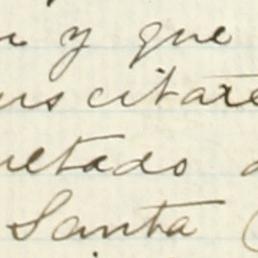 y que
uscitare
ultado
Santa (